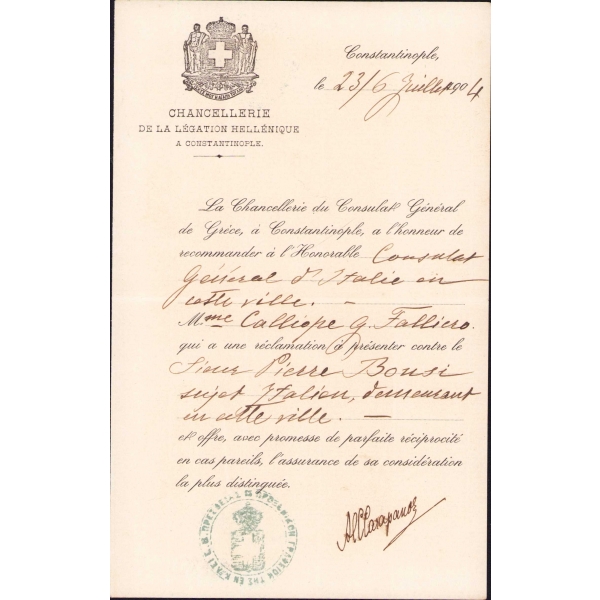 Constantinople,
le 23/6 Juillet 1904
CHANCELLERIE
DE LA LÉGATION HELLÉNIQUE
A CONSTANTINOPLE.
La Chancellerie du Consulat Général
de Grèce, à Constantinople, a l'honneur de
recommander à l'Honorable Consulat
Général d'Italie en
cette ville. —
Mme Calliope G. Falliero
qui a une réclamation à présenter contre le
Sieur Pierre Bonsi
sujet Italien, demeurant
en cette ville. —
et offre, avec promesse de parfaite réciprocité
en cas pareils, l'assurance de sa considération
la plus distinguée.